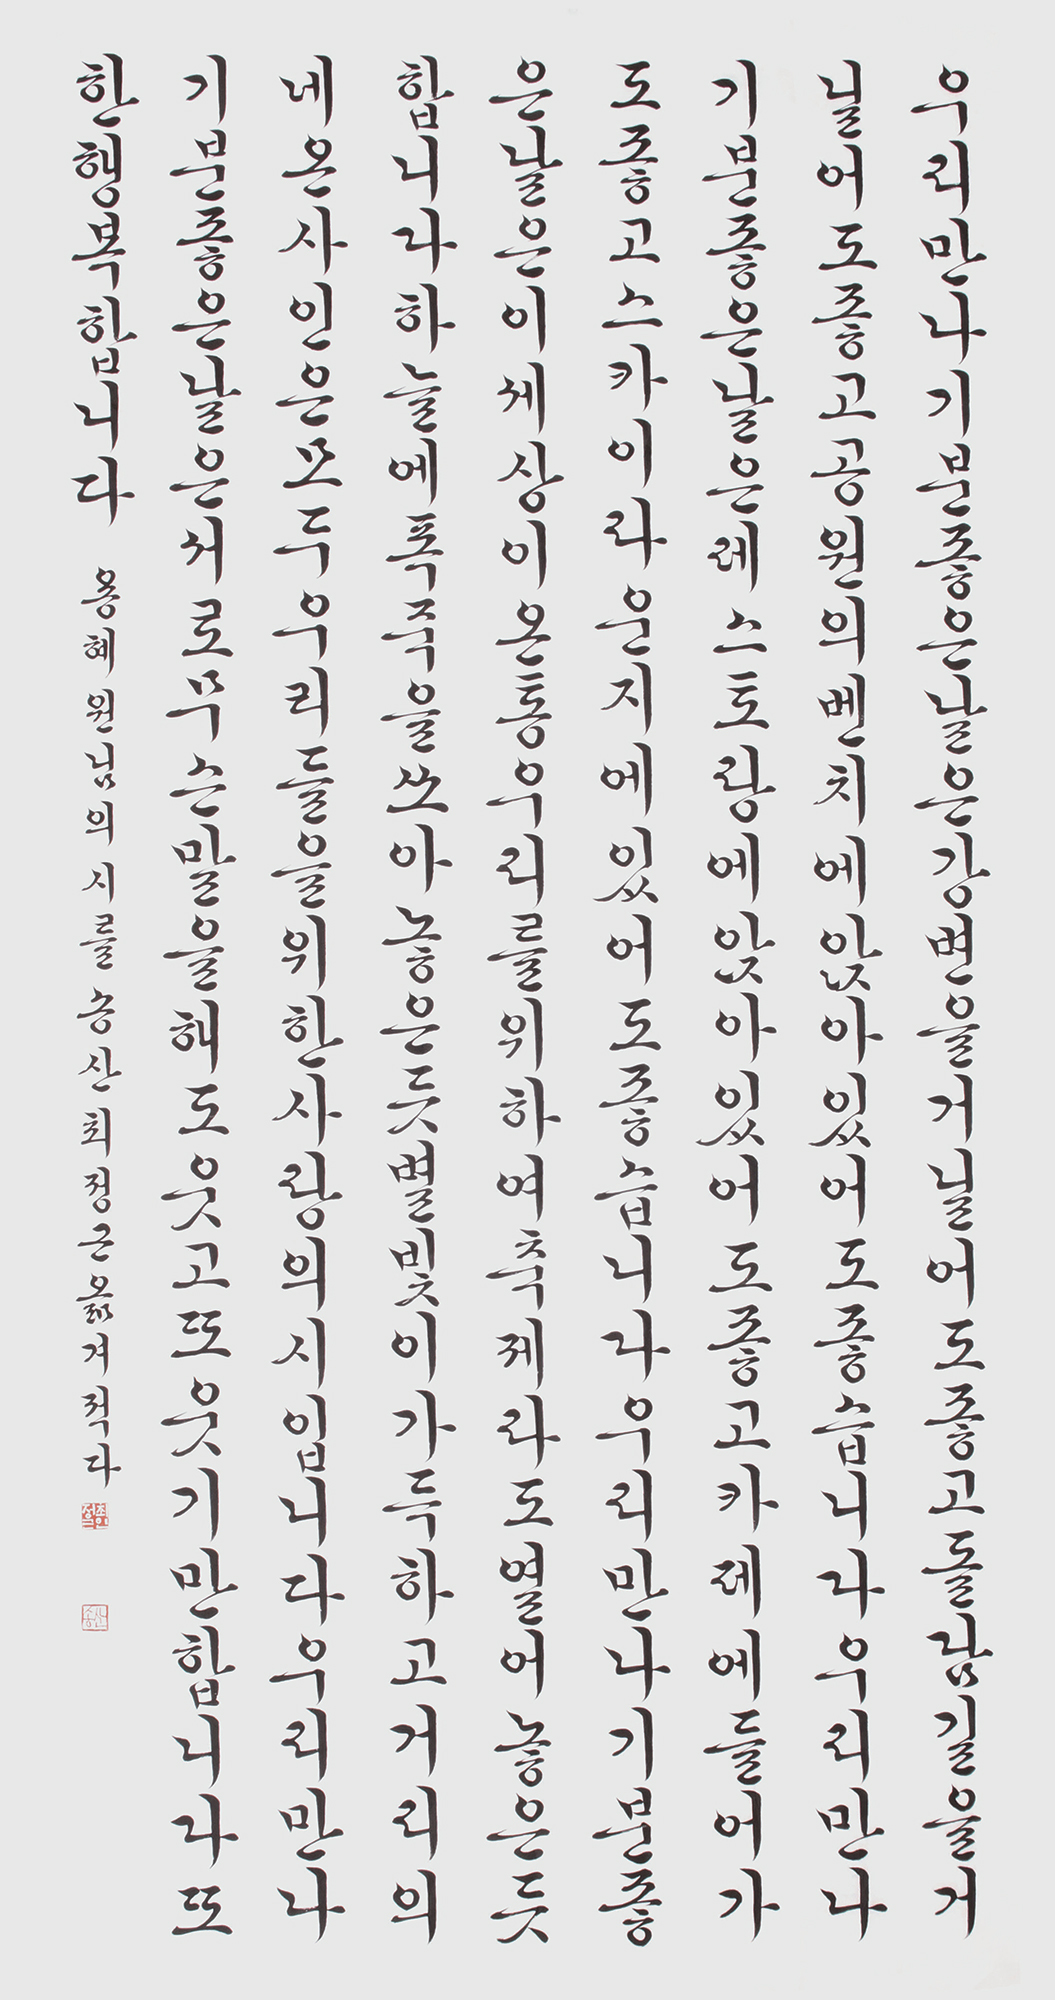 우리만나기분좋은날은강변을거닐어도좋고돌담길을거
닐어도좋고공원의벤치에앉아있어도좋습니다우리만나
기분좋은날은레스토랑에앉아있어도좋고카페에들어가
도좋고스카이라운지에있어도좋습니다우리만나기분좋
은날은이세상이온통우리를위하여축제라도열어놓은듯
합니다하늘에폭죽을쏘아놓은듯별빛이가득하고거리의
네온사인은모두우리들을위한사랑의시입니다우리만나
기분좋은날은서로무슨말을해도웃고또웃기만합니다또
한행복합니다 용혜원님의시를송산최정근옮겨적다